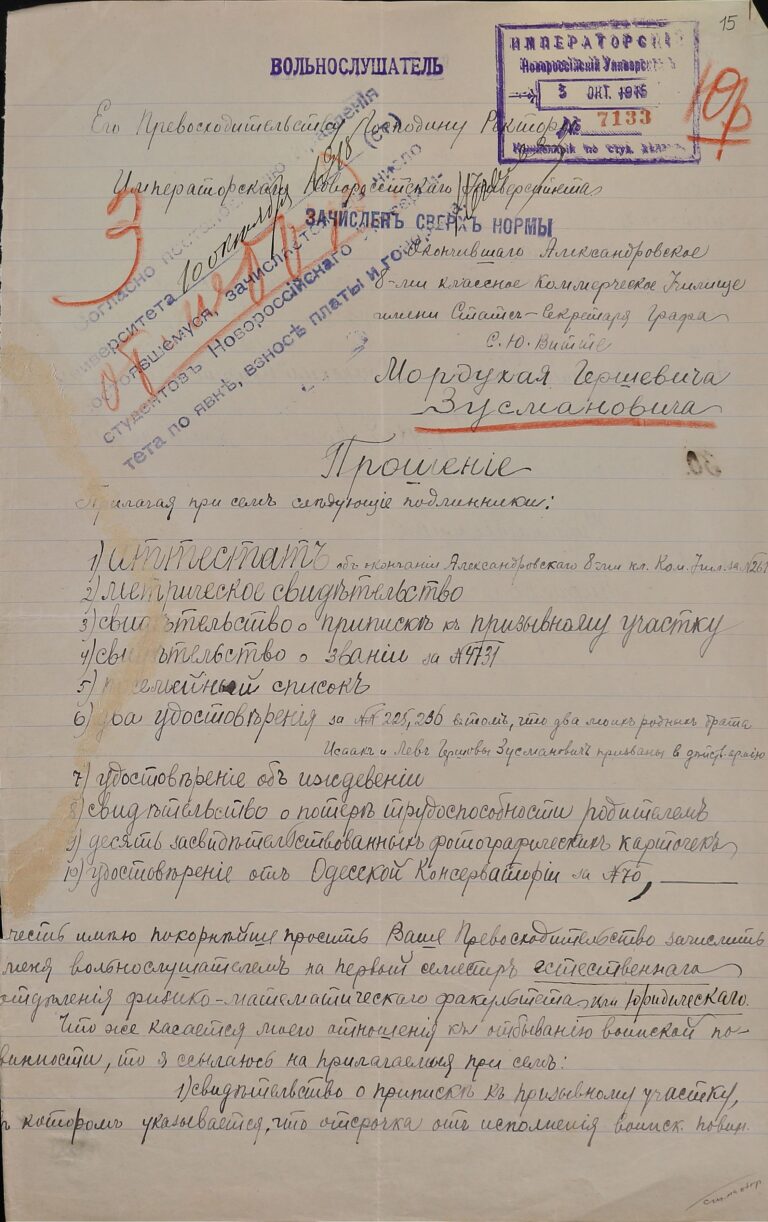 15
ВОЛЬНОСЛУШАТЕЛЬ
ИМПЕРАТОРСКІЙ
Новороссійскій Университетъ
3 ОКТ. 1916
№ 7133
Канцелярія по студ. дѣламъ
Его Превосходительству Господину Ректору
Императорскаго Новороссійскаго Университета
ЗАЧИСЛЕНЪ СВЕРХЪ НОРМЫ
Согласно
Университета 10 октября
зачисляется въ число
студентовъ Новороссійскаго
тета по явкѣ, взносѣ платы и
3
Окончившаго Александровское
8-ми классное Коммерческое Училище
имени Статсъ-Секретаря Графа
С. Ю. Витте
Мордухая Гершевича
Зусмановича
30
Прошеніе
Прилагая при семъ слѣдующіе подлинники:
1) Аттестатъ объ окончаніи Александровскаго 8-ми кл. Ком. Учил. за №261
2) метрическое свидѣтельство
3) свидѣтельство о припискѣ къ призывному участку
4) свидѣтельство о званіи за №4731
5) посемейный списокъ
6) два удостовѣренія за №№ 225, 236 въ томъ, что два моихъ родныхъ брата
Исаакъ и Левъ Гершовы Зусмановичъ призваны в дѣйств. армію
7) удостовѣреніе объ иждевеніи
8) свидѣтельство о потерѣ трудоспособности родителемъ
9) десять засвидѣтельствованныхъ фотографическихъ карточекъ
10) удостовѣреніе отъ Одесской Консерваторіи за №70,
честь имѣю покорнѣйше просить Ваше Превосходительство зачислить
меня вольнослушателемъ на первый семестръ естественнаго
отдѣленія физико-математическаго факультета или Юридическаго.
Что же касается моего отношенія къ отбыванію воинской по-
винности, то я ссылаюсь на прилагаемыя при семъ:
1) свидѣтельство о припискѣ къ призывному участку,
въ которомъ указывается, что отсрочка отъ исполненія воинск. повин.